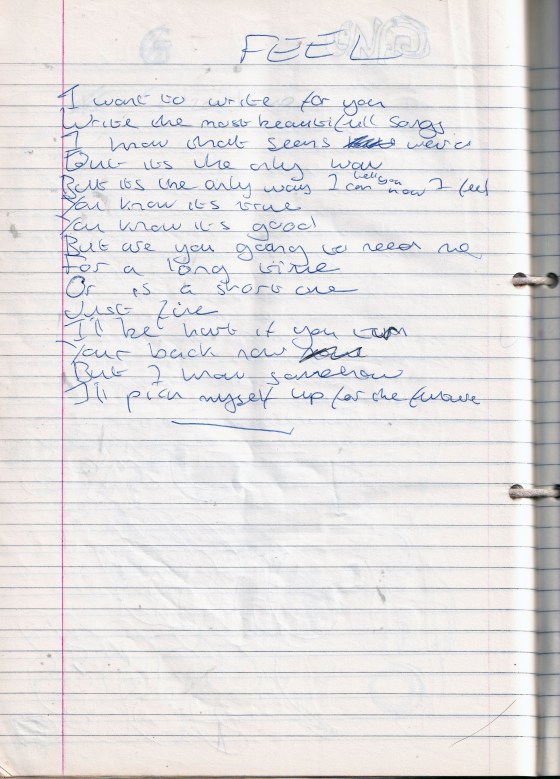 FEEL
I want to write for you
Write the most beautifull songs
I know that seems weird
But its the only way
But its the only way I can tell you how I feel
You know its true
You know its good
But are you going to need me
For a long time
Or is a short one
Just fine
I'll be hurt if you turn
Your back now
But I know somehow
I'll pick myself up for the future